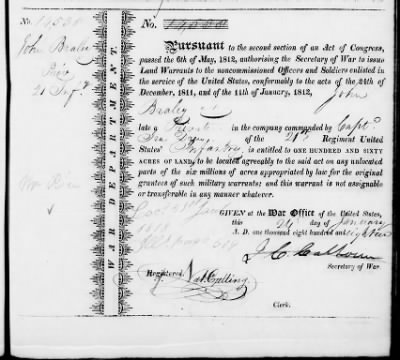 No. 11500
John Braley
Priv
21 Inf.y
WAR DEPARTMENT.
No. 11500
Pursuant to the second section of an Act of Congress,
passed the 6th of May, 1812, authorising the Secretary of War to issue
Land Warrants to the noncommissioned Officers and Soldiers enlisted
in the service of the United States, conformably to the acts of the 24th of
December, 1811, and of the 11th of January, 1812, John
Braley
late a Private in the company commanded by Capt.
of the 21st Regiment United
States' Infantry, is entitled to ONE HUNDRED AND SIXTY
ACRES OF LAND, to be located agreeably to the said act on any unlocated
parts of the six millions of acres appropriated by law for the original
grantees of such military warrants; and this warrant is not assignable
or transferable in any manner whatever.
GIVEN at the War Office of the United States,
this day of January
A. D. one thousand eight hundred and eighteen
J. C. Calhoun
Secretary of War.
Registered, Nat. Cutting
Clerk.